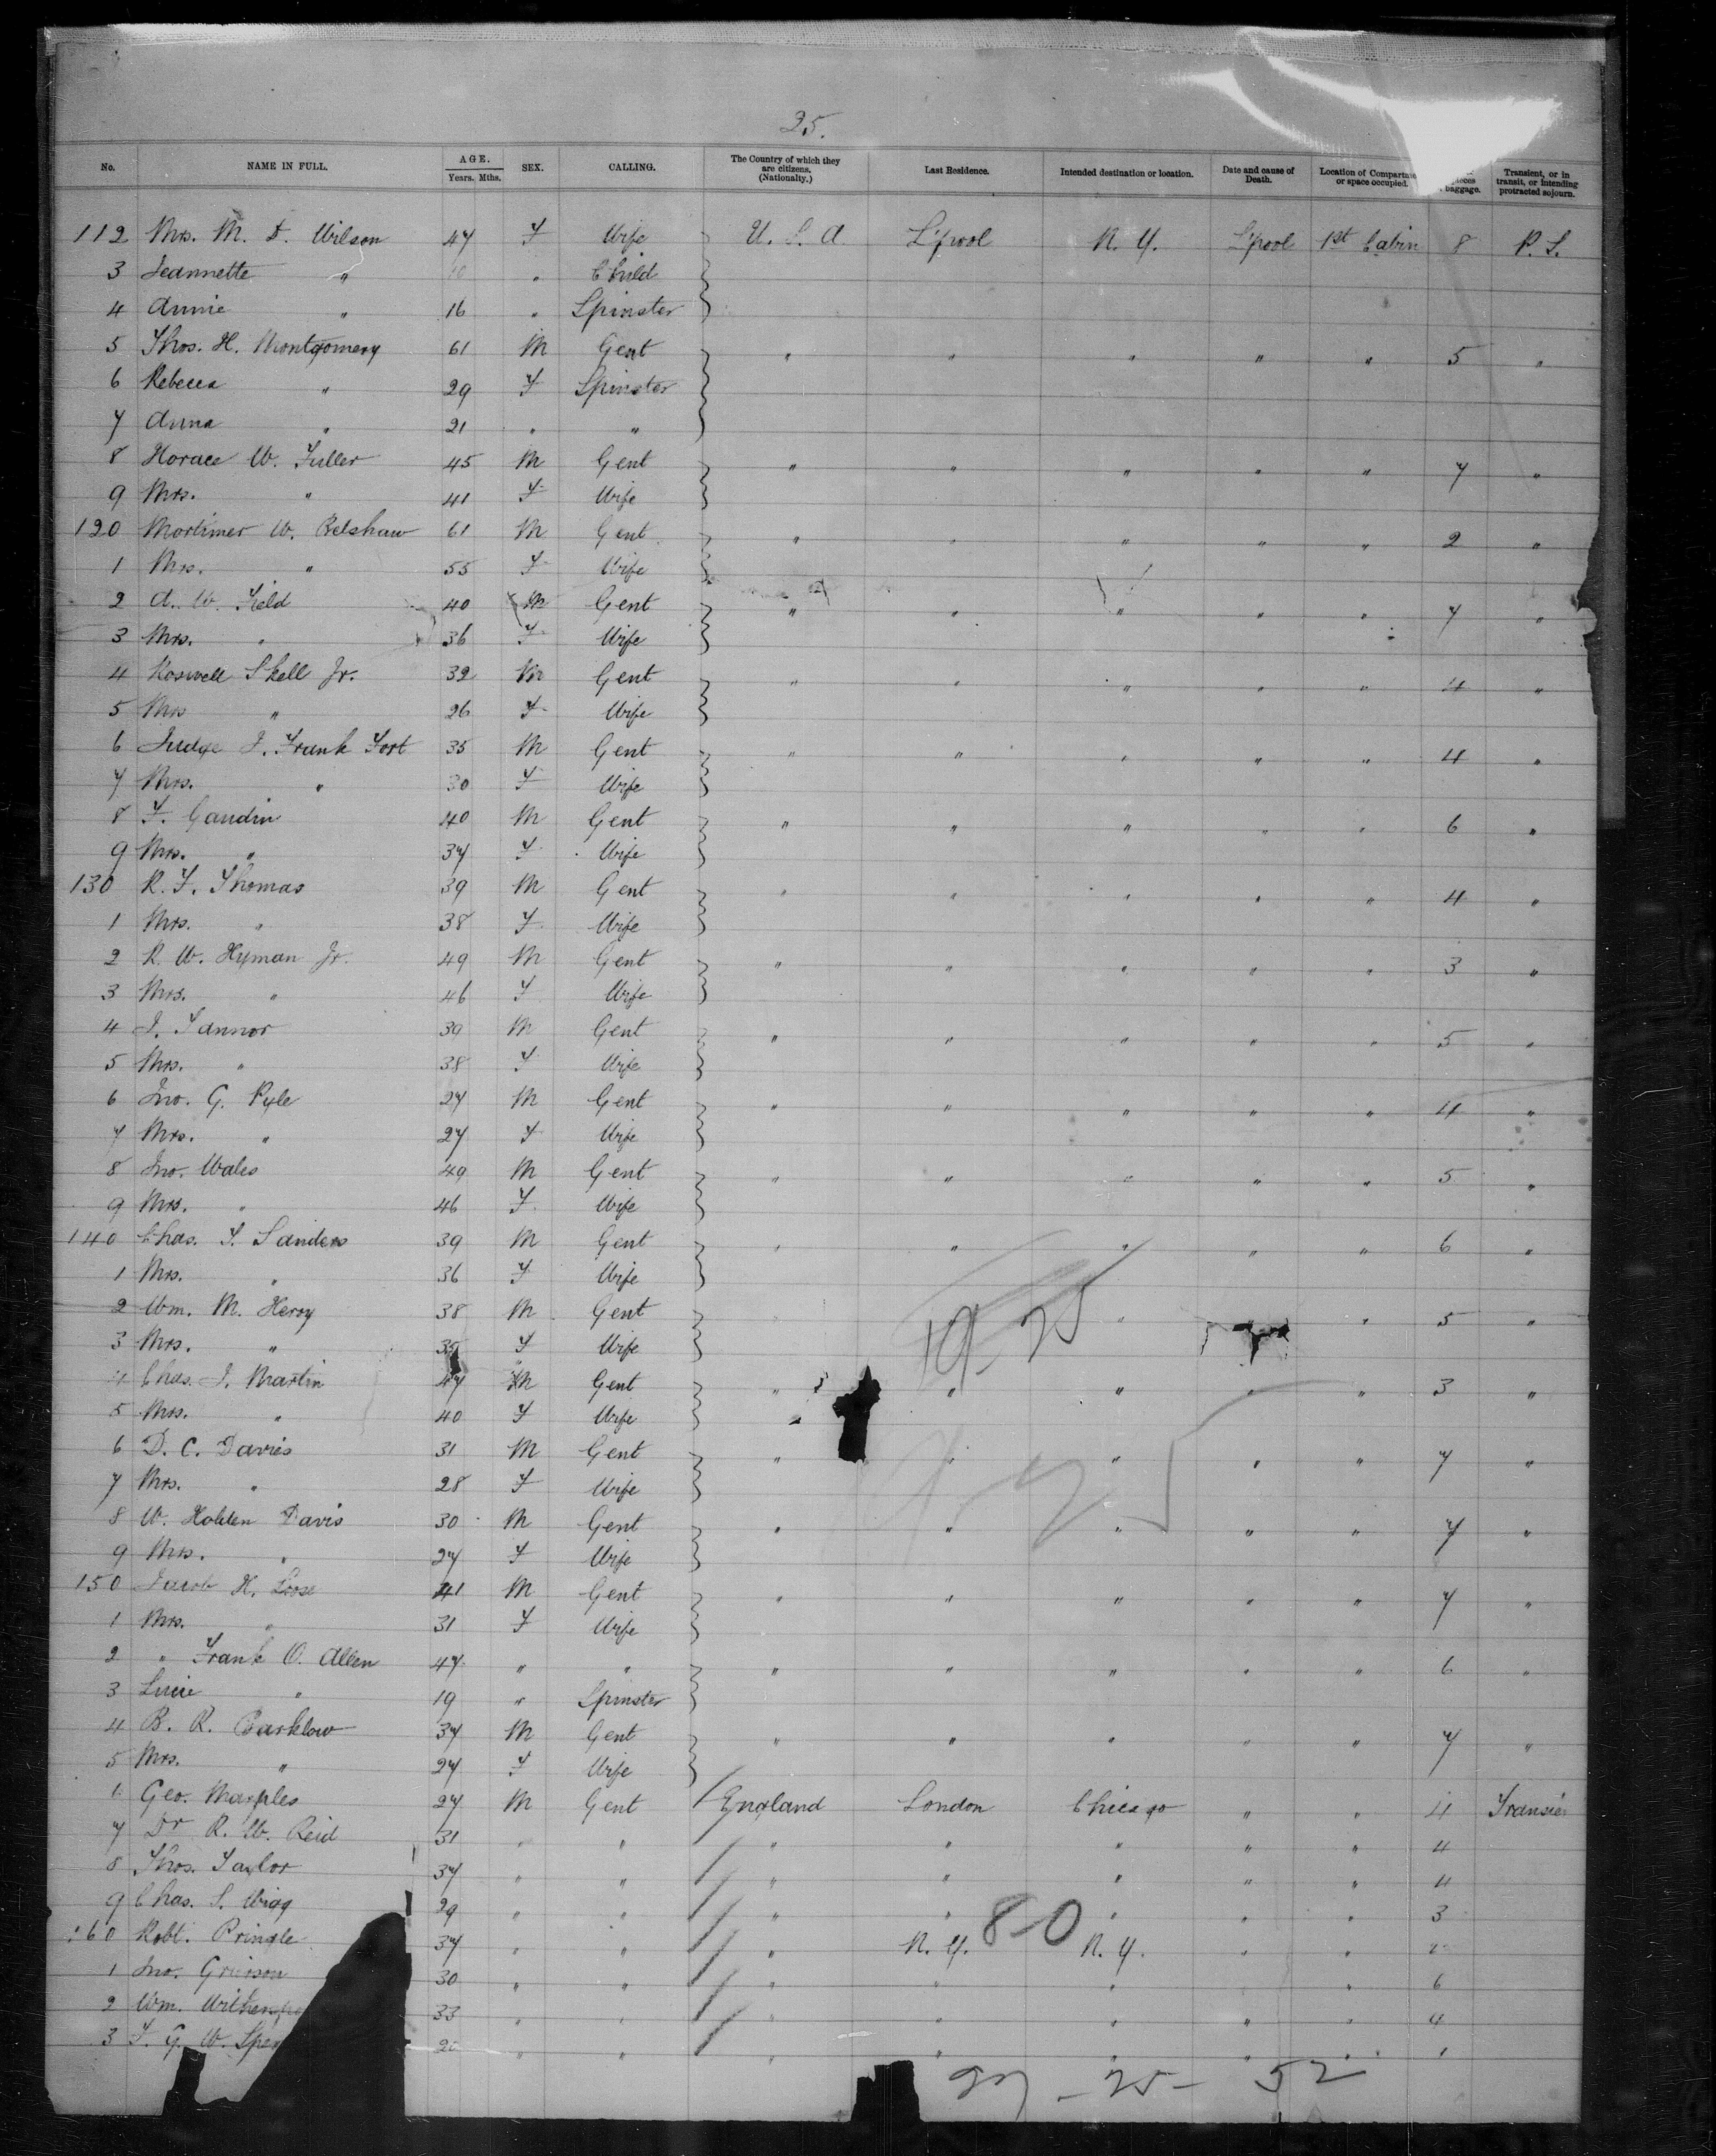 25.
No. NAME IN FULL. AGE. Years. Mths. SEX. CALLING. The Country of which they are citizens. (Nationalty.) Last Residence. Intended destination or location. Date and cause of Death. Location of Compartme or space occupied. ieces baggage. Transient, or in transit, or intending protracted sojourn.
112 Mrs. M. D. Wilson 47 F Wife U. S. A L'pool N. Y. L'pool 1st Cabin 8 P. S.
3 Jeannette " 10 " Child
4 Annie " 16 " Spinster
5 Thos. H. Montgomery 61 M Gent " " " " " 5 "
6 Rebecca " 29 F Spinster
7 Anna " 21 " "
8 Horace W. Fuller 45 M Gent " " " " " 7 "
9 Mrs. " 41 F Wife
120 Mortimer W. Belshaw 61 M Gent " " " " " 2 "
1 Mrs. " 55 F Wife
2 A. W. Field 40 M Gent " " " " " 7 "
3 Mrs. " 36 F Wife
4 Roswell Skell Jr. 32 M Gent " " " " " 4 "
5 Mrs " 26 F Wife
6 Judge J. Frank Fort 35 M Gent " " " " " 4 "
7 Mrs. " 30 F Wife
8 F. Gaudin 40 M Gent " " " " " 6 "
9 Mrs. " 37 F Wife
130 R. F. Thomas 39 M Gent " " " " " 4 "
1 Mrs. " 38 F Wife
2 R. W. Hyman Jr. 49 M Gent " " " " " 3 "
3 Mrs. " 46 F Wife
4 J. Tannor 39 M Gent " " " " " 5 "
5 Mrs. " 38 F Wife
6 Jno. G. Pyle 27 M Gent " " " " " 4 "
7 Mrs. " 27 F Wife
8 Jno. Wales 49 M Gent " " " " " 5 "
9 Mrs. " 46 F Wife
140 Chas. T. Sanders 39 M Gent " " " " " 6 "
1 Mrs. " 36 F Wife
2 Wm. M. Heroy 38 M Gent " " " 5 "
3 Mrs. " 35 F Wife
4 Chas. J. Martin 47 M Gent " " " " " 3 "
5 Mrs. " 40 F Wife
6 D. C. Davies 31 M Gent " " " " " 7 "
7 Mrs. " 28 F Wife
8 W. Holden Davis 30 M Gent " " " " " 7 "
9 Mrs. " 27 F Wife
150 Jacob H. Loose 41 M Gent " " " " " 7 "
1 Mrs. " 31 F Wife
2 " Frank O. Allen 47 " " " " " " " 6 "
3 Lucie " 19 " Spinster
4 B. R. Barklow 37 M Gent " " " " " 7 "
5 Mrs. " 27 F Wife
6 Geo. Marples 27 M Gent England London Chicago " " 4 Transien
7 Dr R. W. Reid 31 " " " " " " " 4
8 Thos. Taylor 37 " " " " " " " 4
9 Chas. S. Wigg 29 " " " " " " " 3
8-0
160 Robt. Pringle 37 " " " N. Y. N. Y. " "
1 Jno. Grierson 30 " " " " " " 6
2 Wm. 33 " " " " " " " 4
3 F. G. W. Spen " " " " " " " 1
- 25 - 52